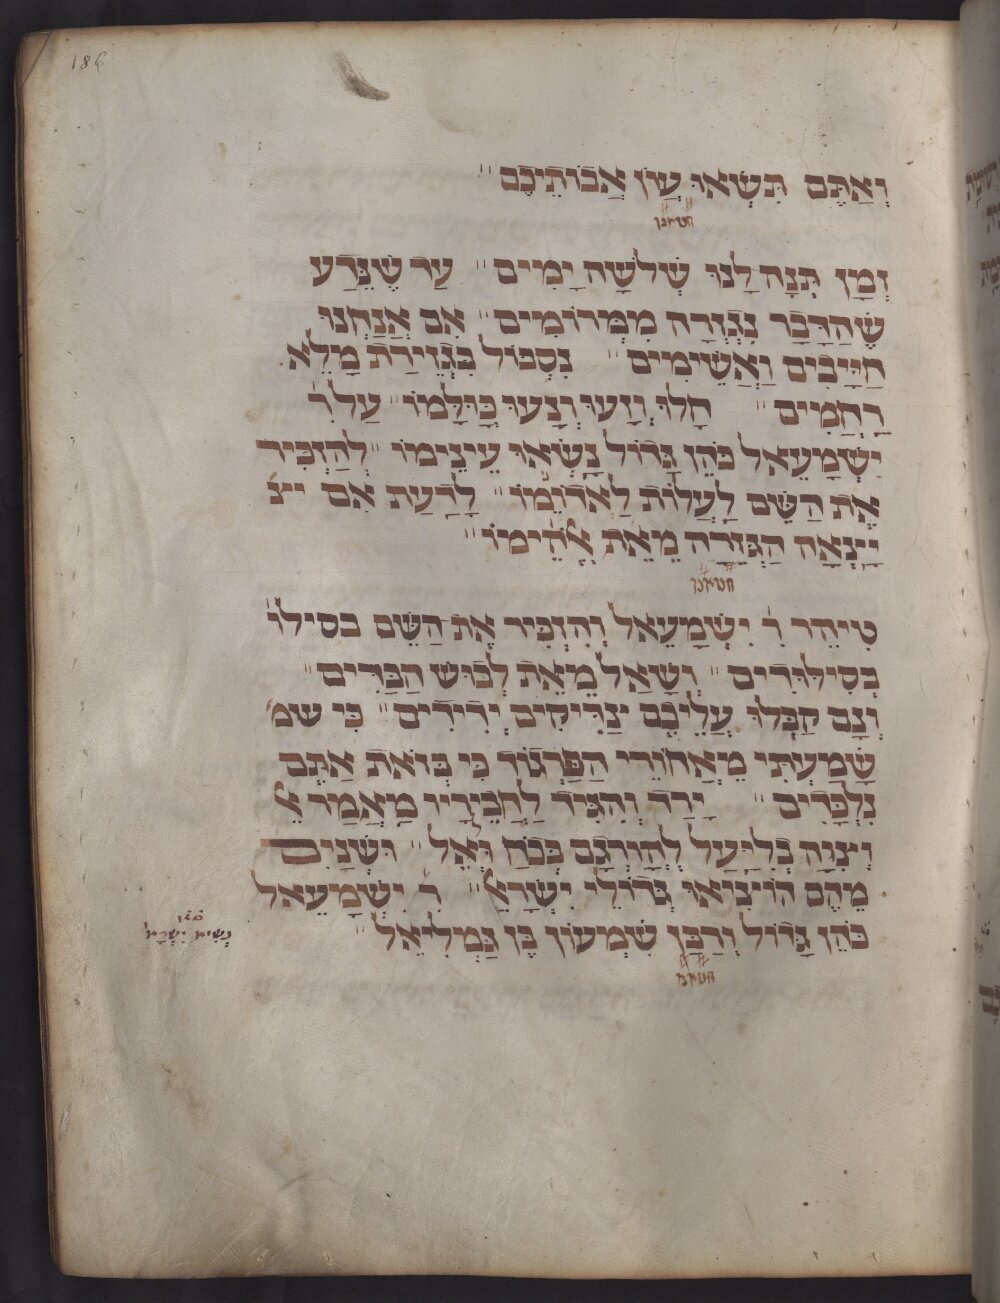 186
וְאַתֶּם תִּשְׂאוּ עֲוֹן אֲבוֹתֵיכֶם"
חטאנו
זְמַן תְּנָה לָנוּ שְׁלשָׁה יָמִים" עַד שֶׁנֵּדַע
שֶׁהַדָּבָר נִגְזְרָה מִמְּרוֹמִים" אִם אֲנַחְנוּ
חַיָּיבִים וַאֲשֵׁימִים" נִסְבּוֹל בִּגְזֵירַת מָלֵא
רַחֲמִים" חָלוּ וְזָעוּ וְנָעוּ כֻּוּלָּמוֹ" עַל ר'
יִשְׁמָעֵאל כֹּהֵן גָּדוֹל נָשְׂאוּ עֵינֵימוֹ" לְהַזְכִּיר
אֶת הַשֵּׁם לַעֲלוֹת לַאֲדוֹנֵימוֹ" לָדַעַת אִם יצ
יָצְאָה הַגְּזֵרָה מֵאֵת אֱלֹהֵימוֹ"
חטאנו
טִיהֵר ר' יִשְׁמָעֵאל וְהִזְכִּיר אֶת הַשֵּׁם בסילו
בְּסִילּוּדִים" וְשָׁאַל מֵאֵת לְבוּשׁ הַבַּדִּים"
וְנָם קַבְּלוּ עֲלֵיכֶם צַדִּיקִים יְדִידִים" כִּי שמ
שָׁמַעְתִּי מֵאֲחוֹרֵי הַפַּרְגּוֹד כִּי בְּזֹאת אַתֶּם
נִלְכָּדִים" יָרַד וְהִגִּיד לַחֲבֵירָיו מַאֲמַר אֵל
וְצִוָּה בְּלִיַּעַל לְהָרְגָם בְּכֹחַ וְאֵל" וּשְׁנַיִם
מֵהֶם הוֹצִיאוּ גְּדוֹלֵי יִשְׂרָאֵ' ר' יִשְׁמָעֵאל
כֹּהֵן גָּדוֹל וְרַבָּן שִׁמְעוֹן בֶּן גַּמְלִיאֵל"
נְשִׂיא יִשְׂרָאֵ'
חטאנו